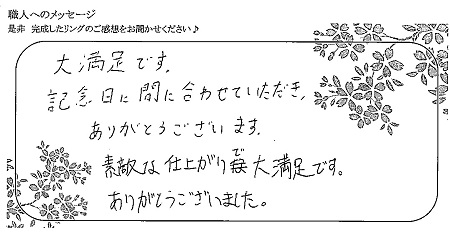 職人へのメッセージ
是非 完成したリングのご感想をお聞かせください♪
大満足です。
記念日に間に合わせていただき、
ありがとうございます。
素敵な仕上がりで大満足です。
ありがとうございました。